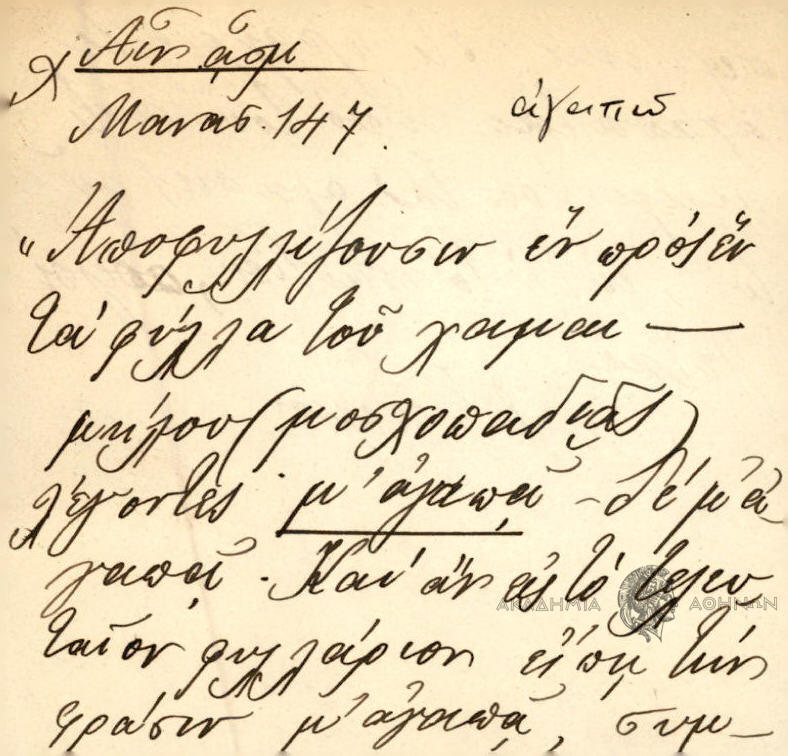 Αἶν. ᾆσμ.
Μανασ. 147.
ἀγαπῶ
"Ἀποφυλλίζουσιν ἕν πρός ἕν
τά φύλλα τοῦ χαμαι—
μήλου (μοσχοπαδιᾶς)
λέγοντες μ' ἀγαπᾷ - δέ μ' ἀ
γαπᾷ. Καί ἄν εἰς τό τελευ
ταῖον φυλλάριον εἴπῃ τήν
φράσιν μ' ἀγαπᾷ, συμ—
ΑΚΑΔΗΜΙΑ ΑΘΗΝΩΝ